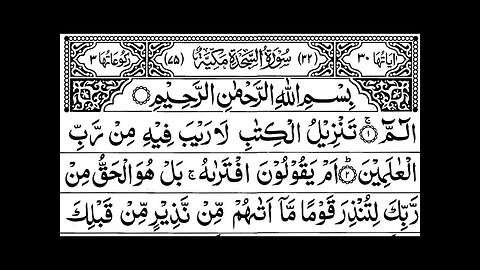 اٰيَاتُهَا ٣٠ (٣٢) سُوْرَةُ السَّجْدَةِ مَكِّيَّةٌ (٧٥) رُكُوْعَاتُهَا ٣
بِسْمِ اللّٰهِ الرَّحْمٰنِ الرَّحِيْمِ ۝
الٓمّٓ ۝١ تَنْزِيْلُ الْكِتٰبِ لَا رَيْبَ فِيْهِ مِنْ رَّبِّ
الْعٰلَمِيْنَ ۝٢ اَمْ يَقُوْلُوْنَ افْتَرٰىهُ ۚ بَلْ هُوَ الْحَقُّ مِنْ
رَّبِّكَ لِتُنْذِرَ قَوْمًا مَّاۤ اَتٰىهُمْ مِّنْ نَّذِيْرٍ مِّنْ قَبْلِكَ